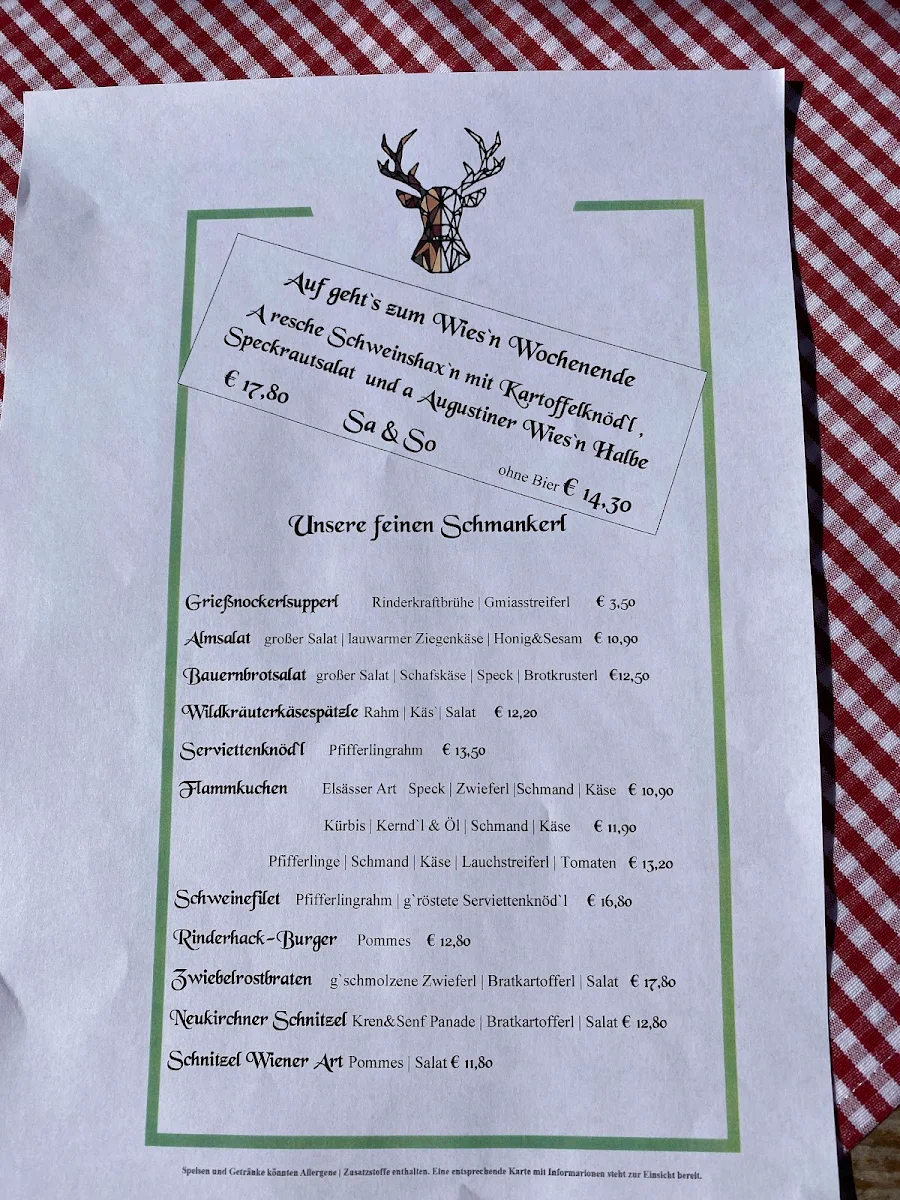 Auf geht`s zum Wies`n Wochenende
A resche Schweinshax`n mit Kartoffelknöd`l ,
Speckrautsalat und a Augustiner Wies`n Halbe
€ 17,80
Sa & So
ohne Bier € 14,30
Unsere feinen Schmankerl
Grießnockerlsupperl Rinderkraftbrühe | Gmiasstreiferl € 3,50
Almsalat großer Salat | lauwarmer Ziegenkäse | Honig&Sesam € 10,90
Bauernbrotsalat großer Salat | Schafskäse | Speck | Brotkrusterl €12,50
Wildkräuterkäsespätzle Rahm | Käs`| Salat € 12,20
Serviettenknöd`l Pfifferlingrahm € 13,50
Flammkuchen Elsässer Art Speck | Zwieferl |Schmand | Käse € 10,90
Kürbis | Kernd`l & Öl | Schmand | Käse € 11,90
Pfifferlinge | Schmand | Käse | Lauchstreiferl | Tomaten € 13,20
Schweinefilet Pfifferlingrahm | g`röstete Serviettenknöd`l € 16,80
Rinderhack-Burger Pommes € 12,80
Zwiebelrostbraten g`schmolzene Zwieferl | Bratkartofferl | Salat € 17,80
Neukirchner Schnitzel Kren&Senf Panade | Bratkartofferl | Salat € 12,80
Schnitzel Wiener Art Pommes | Salat € 11,80
Speisen und Getränke könnten Allergene | Zusatzstoffe enthalten. Eine entsprechende Karte mit Informarionen steht zur Einsicht bereit.